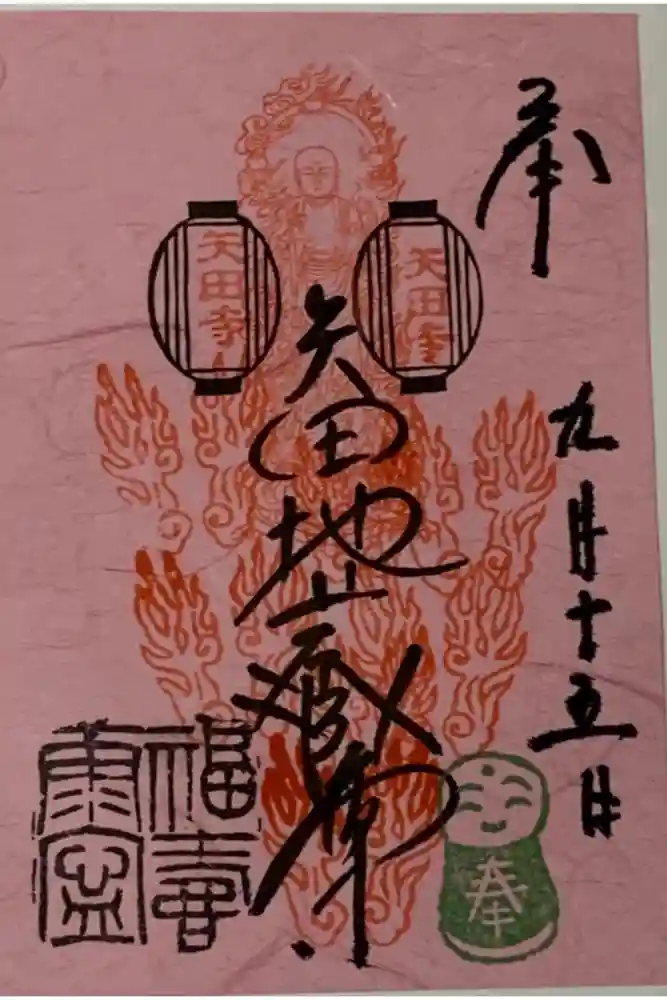 奉
九月十五日
矢田寺
矢田寺
矢田地蔵尊
福寿
康寧
奉